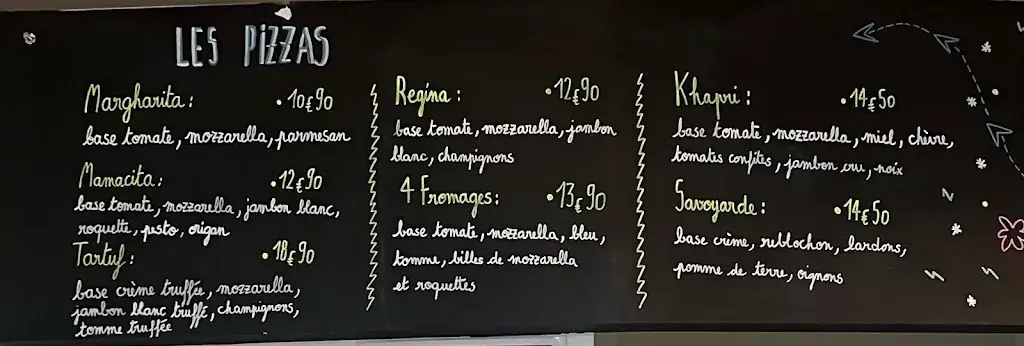 LES PIZZAS
Margharita : • 10€90
base tomate, mozzarella, parmesan
Mamacita : • 12€90
base tomate, mozzarella, jambon blanc,
roquette, pesto, origan
Tartuf : • 18€90
base crème truffée, mozzarella,
jambon blanc truffé, champignons,
tomme truffée
Regina : • 12€90
base tomate, mozzarella, jambon
blanc, champignons
4 Fromages : • 13€90
base tomate, mozzarella, bleu,
tomme, billes de mozzarella
et roquettes
Khapri : • 14€50
base tomate, mozzarella, miel, chèvre,
tomates confites, jambon cru, noix
Savoyarde : • 14€50
base crème, reblochon, lardons,
pomme de terre, oignons